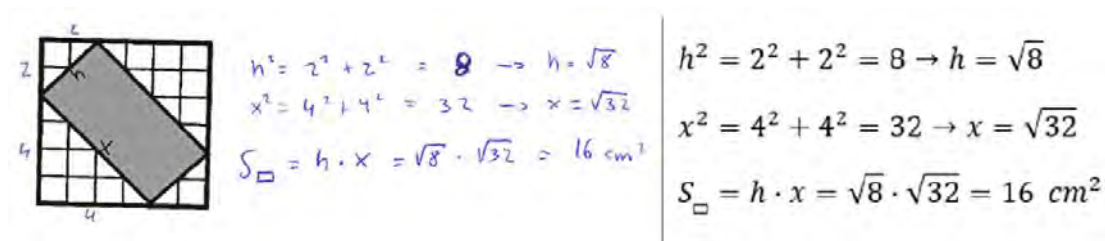 2
2
h
4
x
4
h² = 2² + 2² = 8 → h = √8
x² = 4² + 4² = 32 → x = √32
S▭ = h · x = √8 · √32 = 16 cm²
h² = 2² + 2² = 8 → h = √8
x² = 4² + 4² = 32 → x = √32
S▭ = h · x = √8 · √32 = 16 cm²